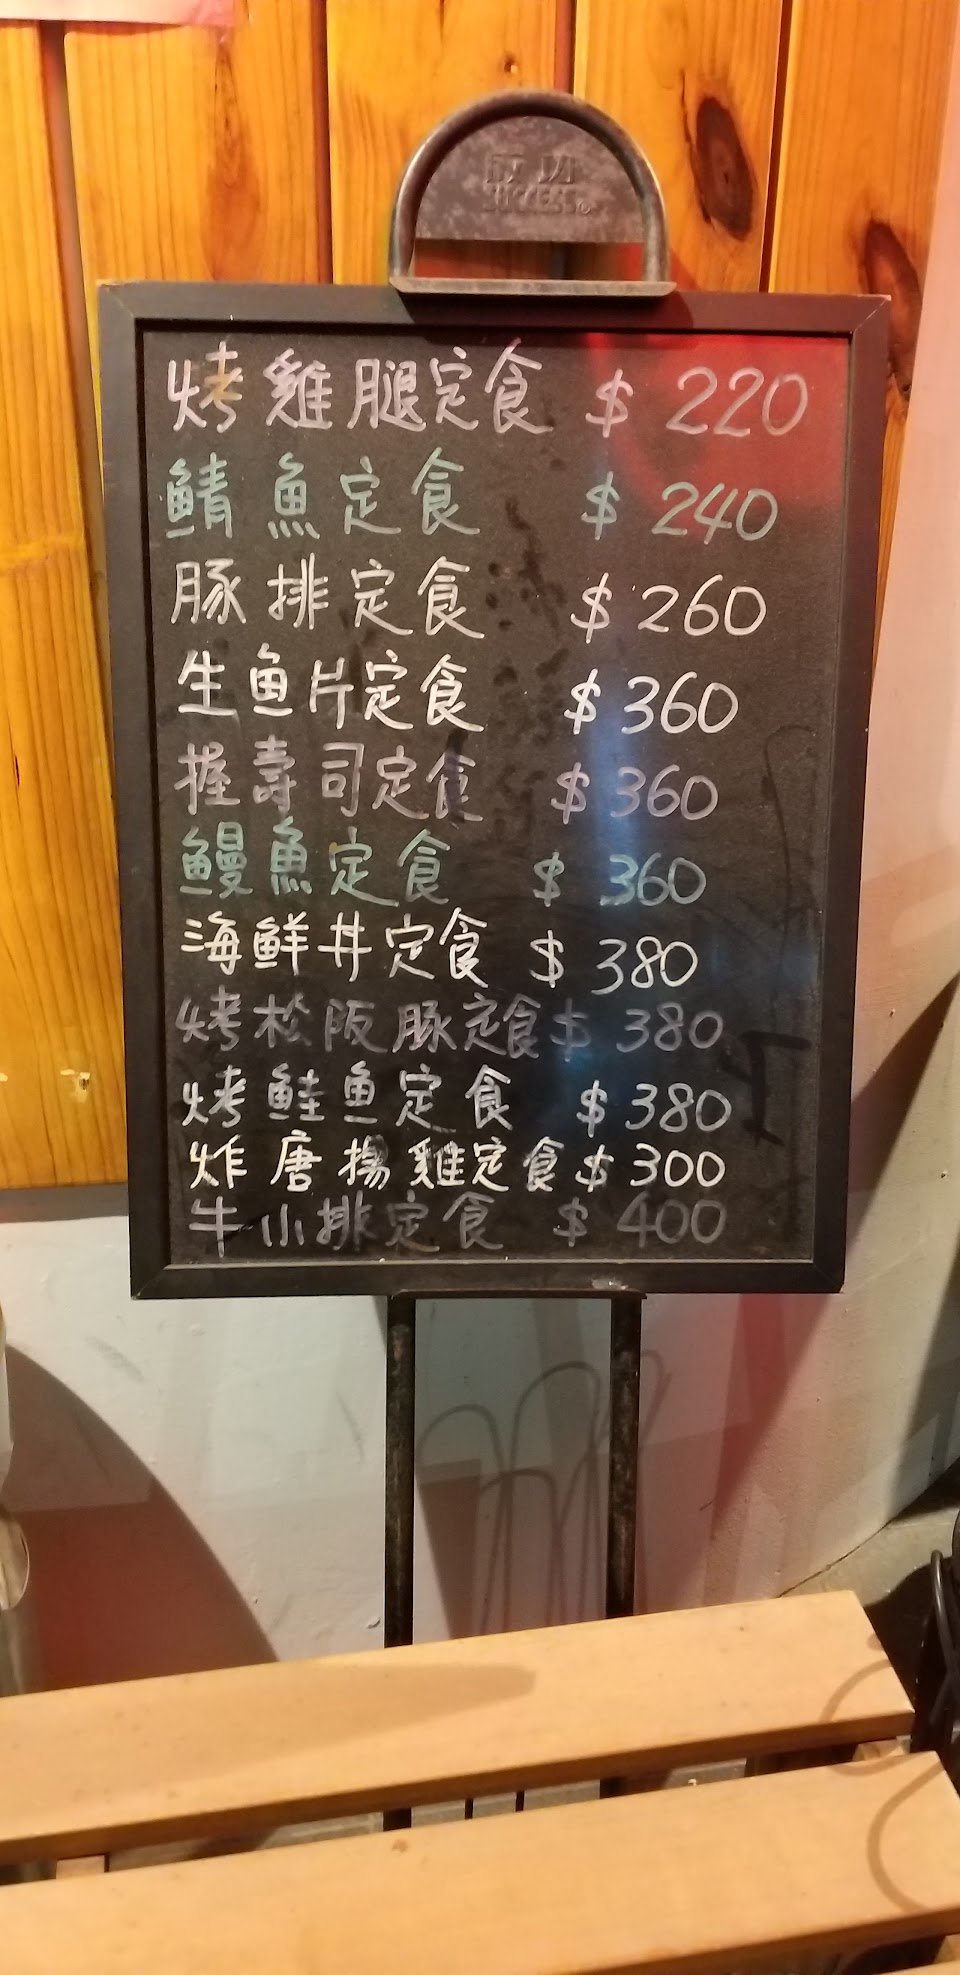 成功
SUCCESS®
烤雞腿定食 $220
鯖魚定食 $240
豚排定食 $260
生魚片定食 $360
握壽司定食 $360
鰻魚定食 $360
海鮮丼定食 $380
烤松阪豚定食 $380
烤鮭魚定食 $380
炸唐揚雞定食 $300
牛小排定食 $400